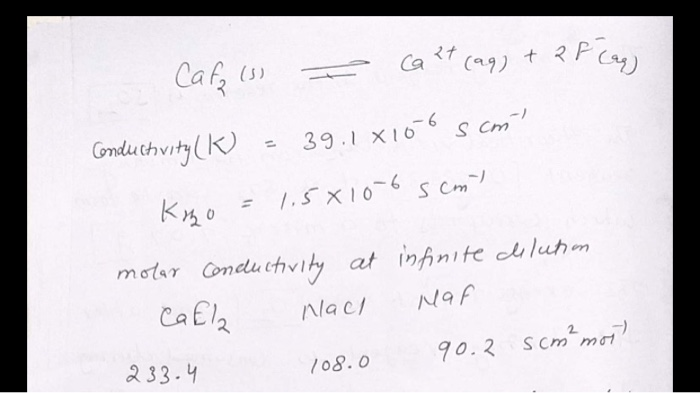 CaF₂ (s) ⇌ Ca²⁺ (aq) + 2F⁻ (aq)
Conductivity (K) = 39.1 × 10⁻⁶ S cm⁻¹
K H₂O = 1.5 × 10⁻⁶ S cm⁻¹
molar conductivity at infinite dilution
CaCl₂ NaCl NaF
233.4 108.0 90.2 S cm² mol⁻¹